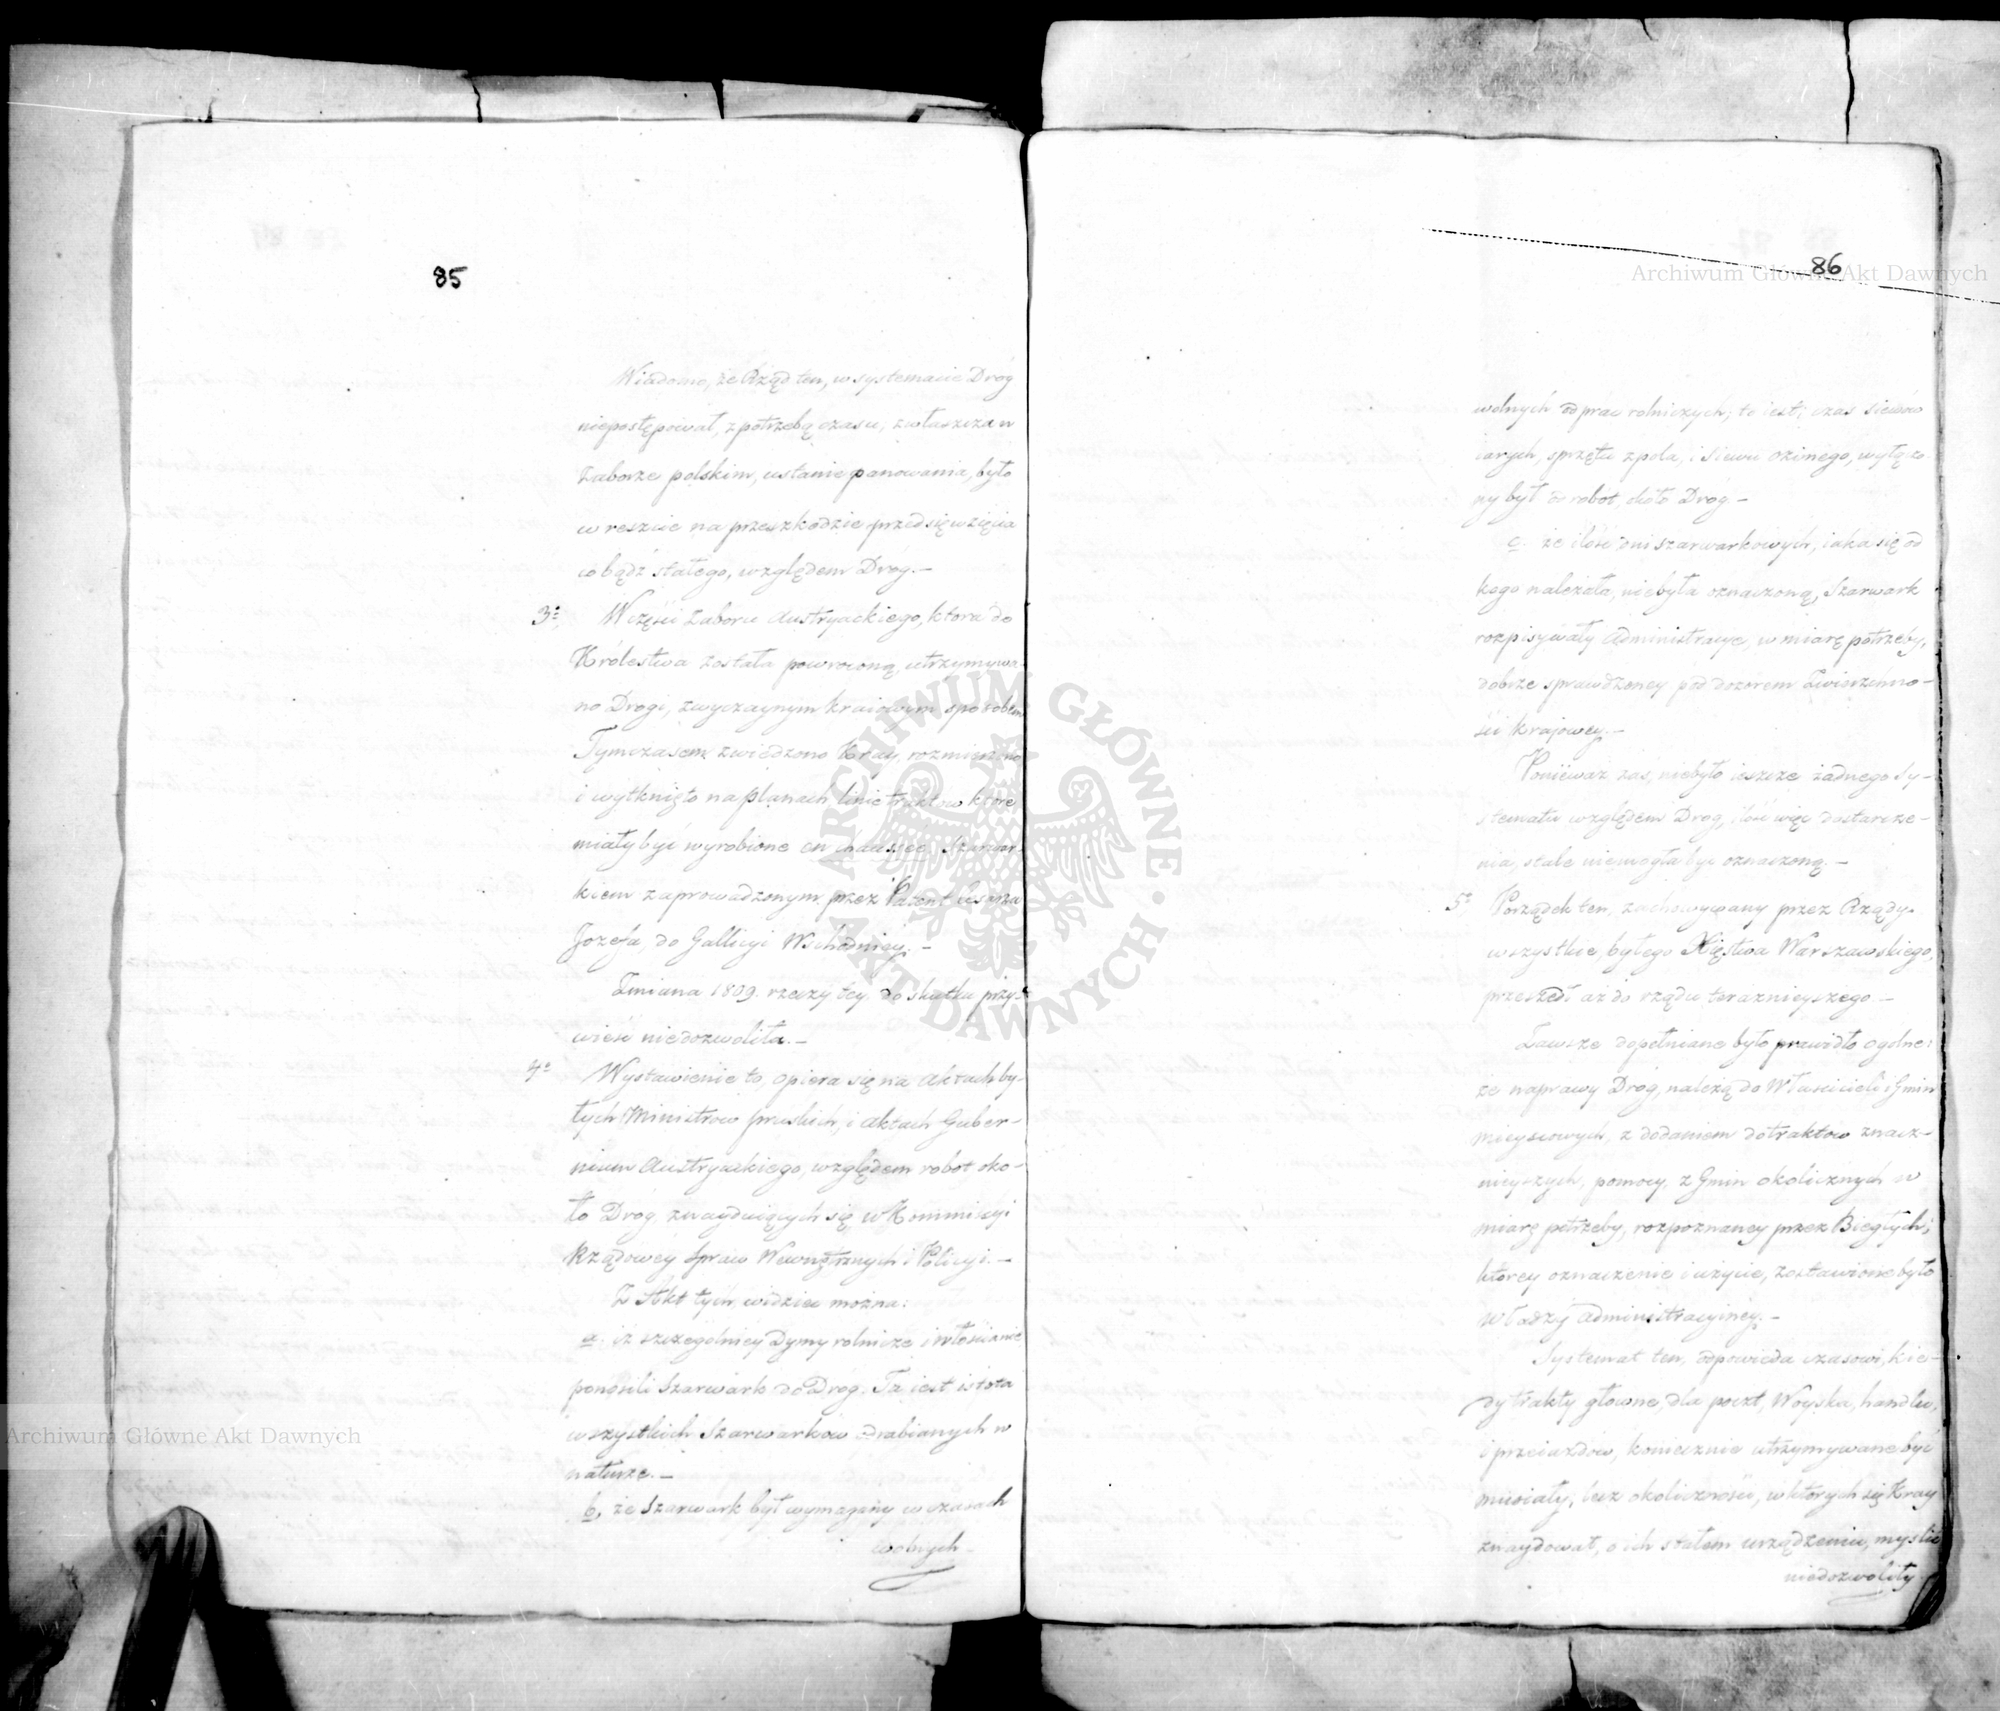 85
Wiadomo, że Rząd ten, w systemacie Dróg
niepostępował, z potrzebą czasu, zwłaszcza w
zaborze polskim, ustanie panowania, było
w reszcie na przeszkodzie przedsięwzięcia
co bądź stałego, względem Dróg.—
3o W części zaboru Austryackiego, która do
Królestwa została powroconą, utrzymywa-
no Drogi, zwyczaynym kraiowym sposobem
Tymczasem zwiedzono Kray, rozmierzono
i wytknięto na planach linie traktow które
miały być wyrobione en chaussee Szarwar-
kiem zaprowadzonym przez Patent Cesarza
Jozefa, do Gallicyi Wschodniey.—
Zmiana 1809. rzeczy tey do skutku przy-
wieść niedozwoliła.—
4o Wystawienie to, opiera się na Aktach by-
łych Ministrow pruskich, i aktach Guber-
nium Austryackiego, względem robot oko-
ło Dróg znayduiących się w Kommissyi
Rządowey Spraw Wewnętrznych i Policyi.—
Z Akt tych widzieć można:
a. iż szczegolniey Dymy rolnicze i włościanie
ponosili Szarwark do Drog. Ta iest istota
wszystkich Szarwarkow odrabianych w
naturze.—
b, że Szarwark był wymagany w czasach
wolnych
86
wolnych od prac rolniczych; to iest; czas siewów
iarych, sprzętu z pola, i siewu ozimego, wyłączo-
ny był od robot, około Dróg—
c. że ilość dni szarwarkowych, iaka się od
kogo należała, niebyła oznaczoną, Szarwark
rozpisywały administracye, w miarę potrzeby,
dobrze sprawdzoney pod dozorem Zwierzchno-
ści krajowey.—
Ponieważ zaś, niebyło ieszcze żadnego Sy-
stematu względem Drog, ilość więc dostarcze-
nia, stale niemogła być oznaczoną.—
5o Porządek ten, zachowywany przez Rządy
wszystkie, byłego Xięstwa Warszawskiego,
przeszedł aż do rządu teraznieyszego—
Zawsze dopełniane było prawidło ogolne:
że naprawy Dróg, należą do Właścicieli i Gmin
mieyscowych, z dodaniem do traktow znacz-
nieyszych, pomocy, z Gmin okolicznych w
miarę potrzeby, rozpoznaney przez Biegłych;
ktorey oznaczenie i użycie, zostawione było
władzy administracyiney.—
Systemat ten, odpowieda czasowi, kie-
dy trakty głowne, dla poczt, Woyska, handlu,
i przeiazdów, koniecznie utrzymywane być
musiały, lecz okoliczności, w ktorych się Kray
znaydował, o ich stałem urządzeniu, myslić
niedozwoliły.
ARCHIWUM GŁÓWNE · AKT DAWNYCH ·
Archiwum Główne Akt Dawnych
Archiwum Główne Akt Dawnych